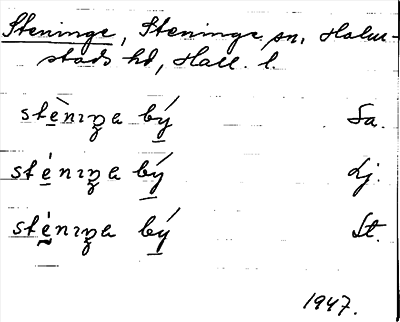 Steninge, Steninge sn, Halm-
stads hd, Hall. l.
stènıŋa bý Sa.
sténıŋa bý Lj.
sténıŋa bý St.
1947.